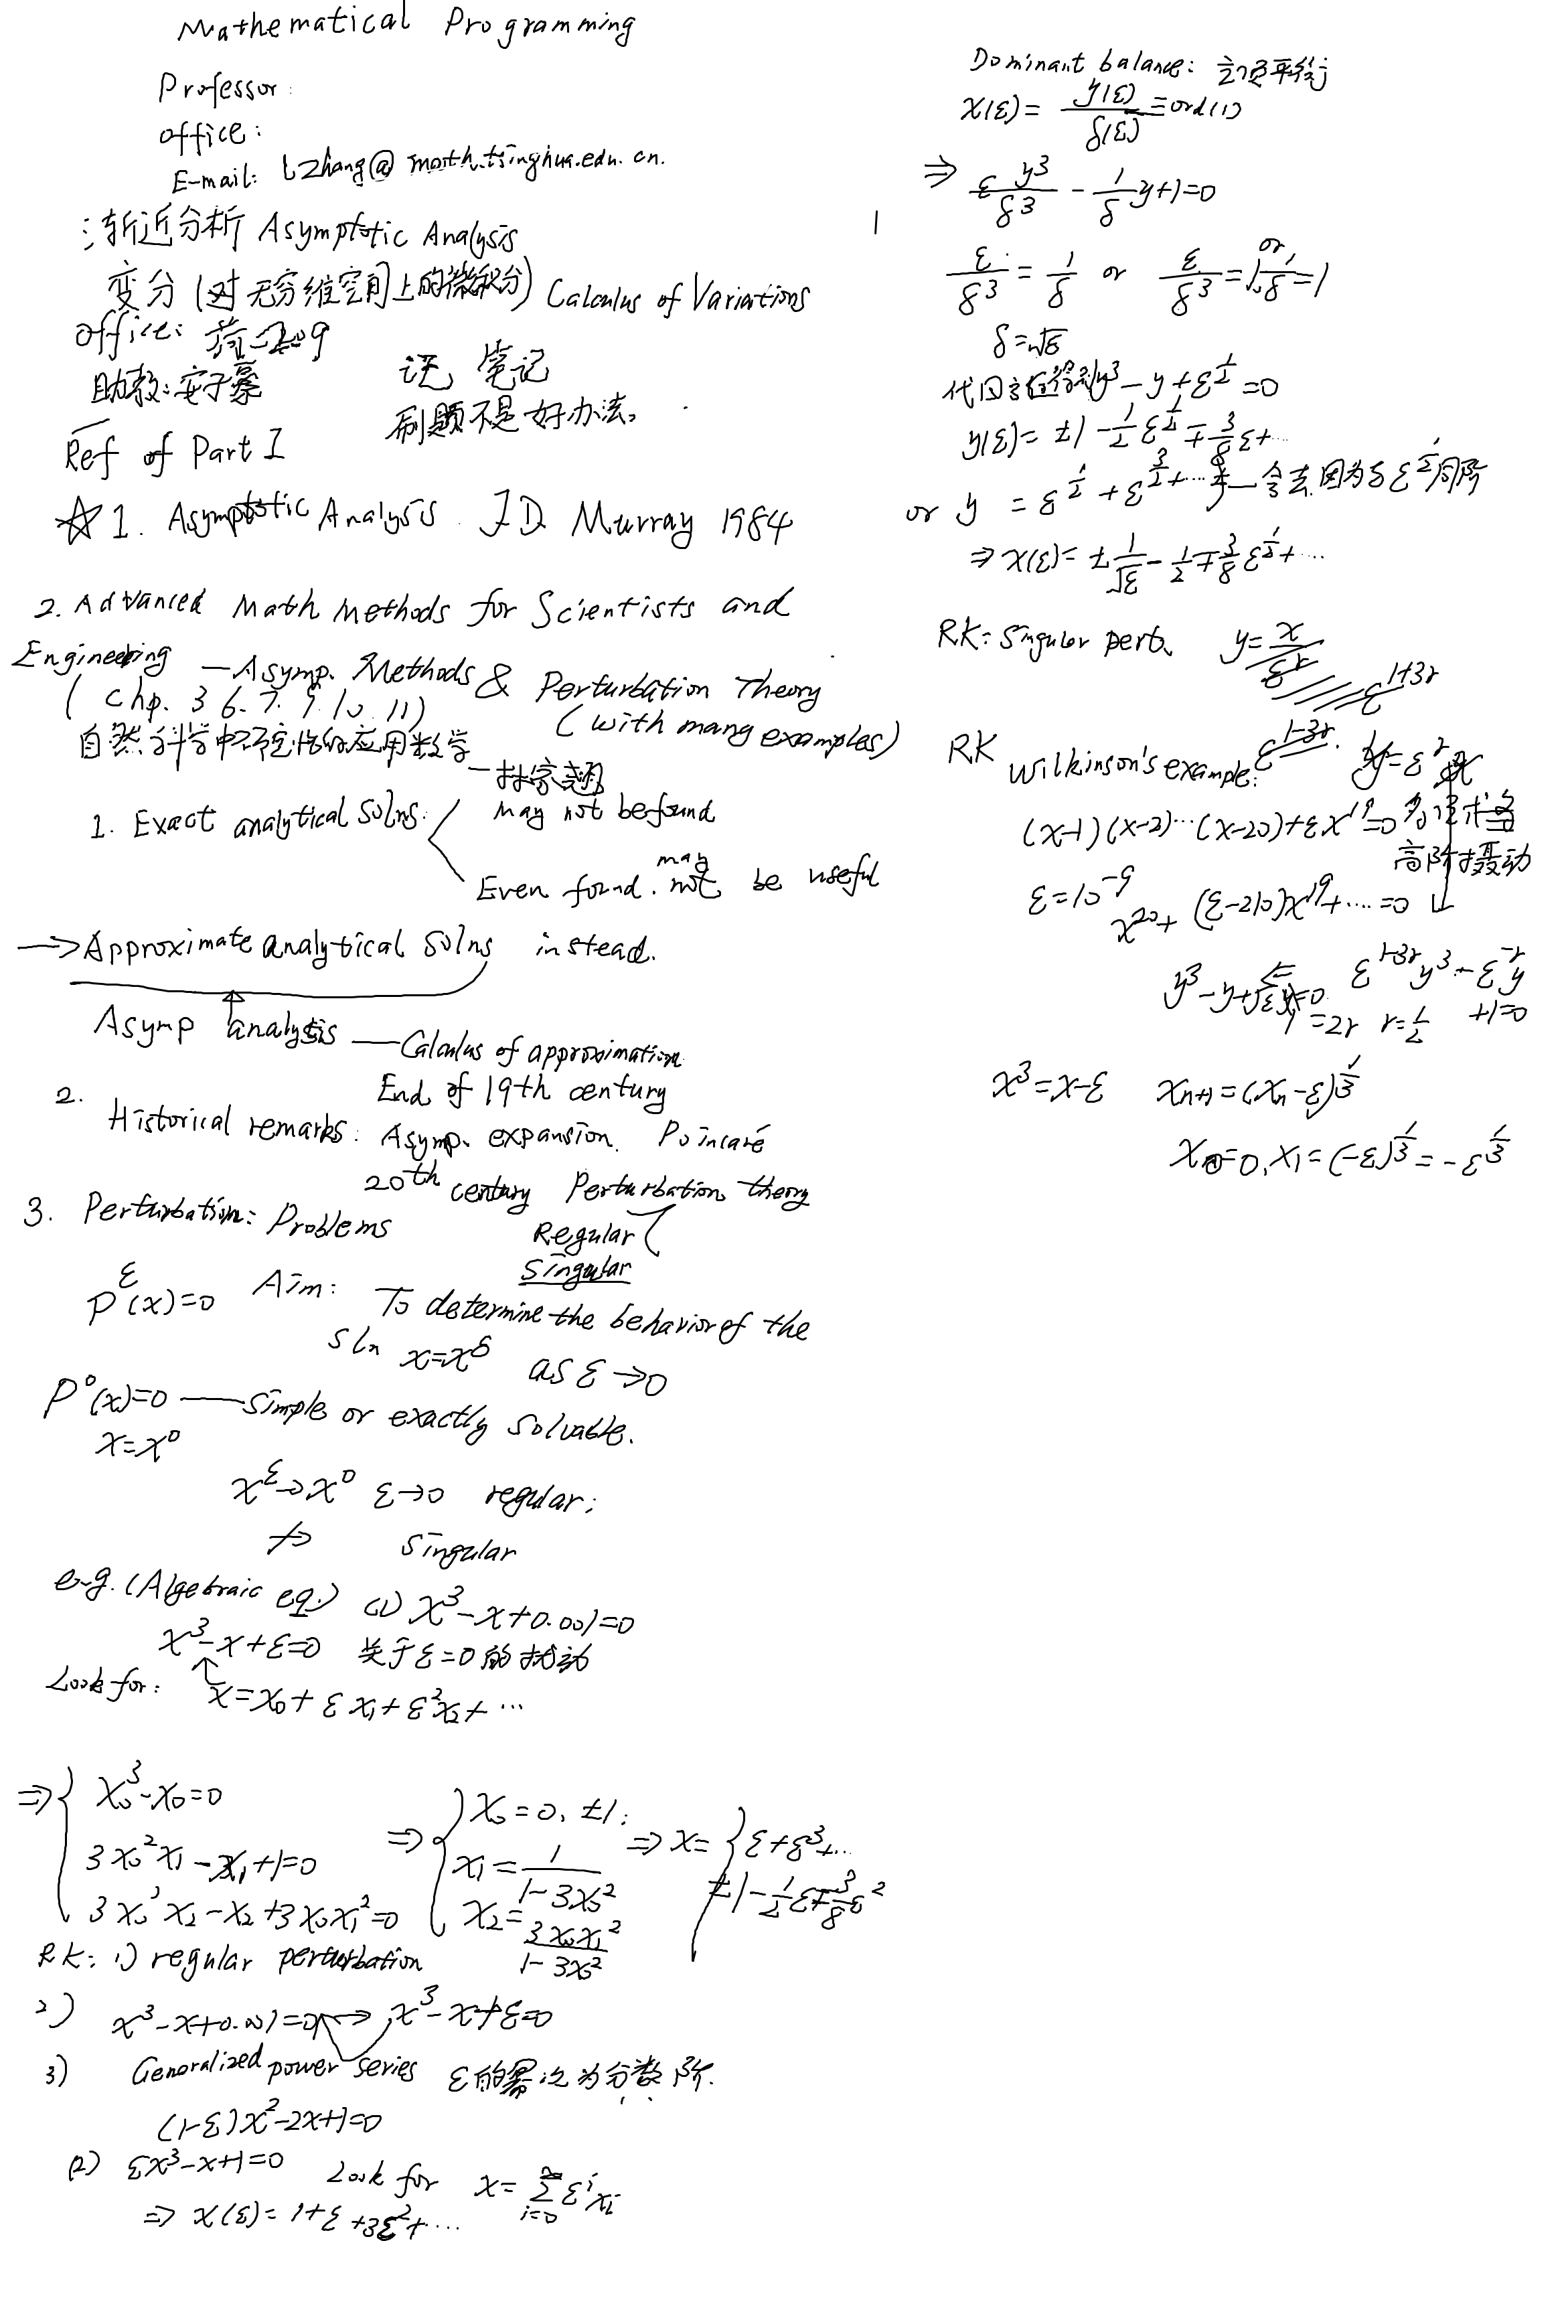 Mathematical Programming
Professor:
office:
E-mail: lzhang@math.tsinghua.edu.cn.
渐近分析 Asymptotic Analysis
变分 (对无穷维空间上的微积分) Calculus of Variations
office: 荷二209
助教: 安子豪
记 笔记
刷题不是好办法。
Ref of Part I
☆ 1. Asymptotic Analysis J D. Murray 1984
2. Advanced Math Methods for Scientists and
Engineering — Asymp. Methods & Perturbation Theory
( chp. 3 6. 7. 9. 10. 11)
(with many examples)
自然科学中确定性的应用数学 — 林家翘
1. Exact analytical Solns.
may not be found
Even found. may not be useful
→ Approximate analytical Solns instead.
Asymp analysis — Calculus of approximation
2. Historical remarks:
End of 19th century
Asymp. expansion. Poincaré
20th century Perturbation theory
Regular
Singular
3. Perturbation: Problems
P^ε(x)=0 Aim: To determine the behavior of the
sln x=x^ε as ε→0
P^0(x)=0 — simple or exactly solvable.
x=x^0
x^ε→x^0 ε→0 regular;
↛ singular
e.g. (Algebraic eq.) (1) x^3-x+0.001=0
x^3-x+ε=0 关于ε=0的扰动
Look for: x=x_0+εx_1+ε^2x_2+…
⇒ { x_0^3-x_0=0
3x_0^2x_1-x_1+1=0
3x_0^2x_2-x_2+3x_0x_1^2=0
⇒ { x_0=0, ±1;
x_1=1/(1-3x_0^2)
x_2=3x_0x_1^2/(1-3x_0^2)
⇒ x= { ε+ε^3+…
±1-1/2ε∓3/8ε^2
RK: 1) regular perturbation
2) x^3-x+0.001=0 ↔ x^3-x+ε=0
3) Generalized power series ε的幂次为分数阶.
(1-ε)x^2-2x+1=0
(2) εx^3-x+1=0 Look for x=∑_{i=0}^∞ε^ix_i
⇒ x(ε)=1+ε+3ε^2+…
Dominant balance: 主项平衡
x(ε)=y(ε)/δ(ε) =ord(1)
⇒ ε y^3/δ^3 - 1/δ y+1=0
ε/δ^3=1/δ or ε/δ^3=1 or 1/δ=1
δ=√ε
代回方程得到y^3-y+ε^{1/2}=0
y(ε)=±1-1/2ε^{1/2}∓3/8ε+…
or y=ε^{1/2}+ε^{3/2}+… 舍去 因为与ε^{1/2}同阶
⇒ x(ε)=±1/√ε-1/2∓3/8ε^{1/2}+…
RK: Singular pert.
RK Wilkinson's example:
ε^{1-3r}. y=ε^r x
(x-1)(x-2)…(x-20)+εx^{19}=0
高阶摄动
ε=10^{-9}
x^{20}+(ε-210)x^{19}+…=0
ε^{1-3r}y^3-ε^{-r}y+1=0
⇐
y^3-y+√ε=0
1=2r r=1/2
x^3=x-ε x_{n+1}=(x_n-ε)^{1/3}
x_0=0, x_1=(-ε)^{1/3}=-ε^{1/3}